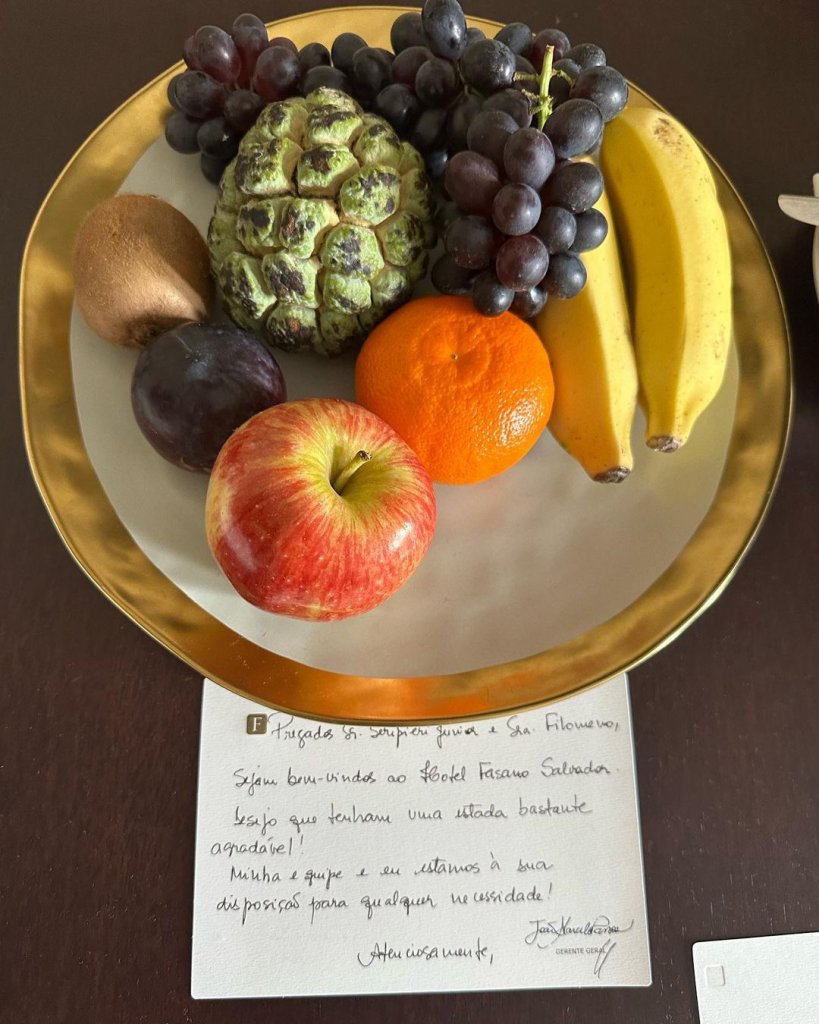 F
Prezados Sr. Seripieri Junior e Sra. Filomeno,
Sejam bem-vindos ao Hotel Fasano Salvador.
Desejo que tenham uma estada bastante
agradável!
Minha equipe e eu estamos à sua
disposição para qualquer necessidade!
João
GERENTE GERAL
Atenciosamente,